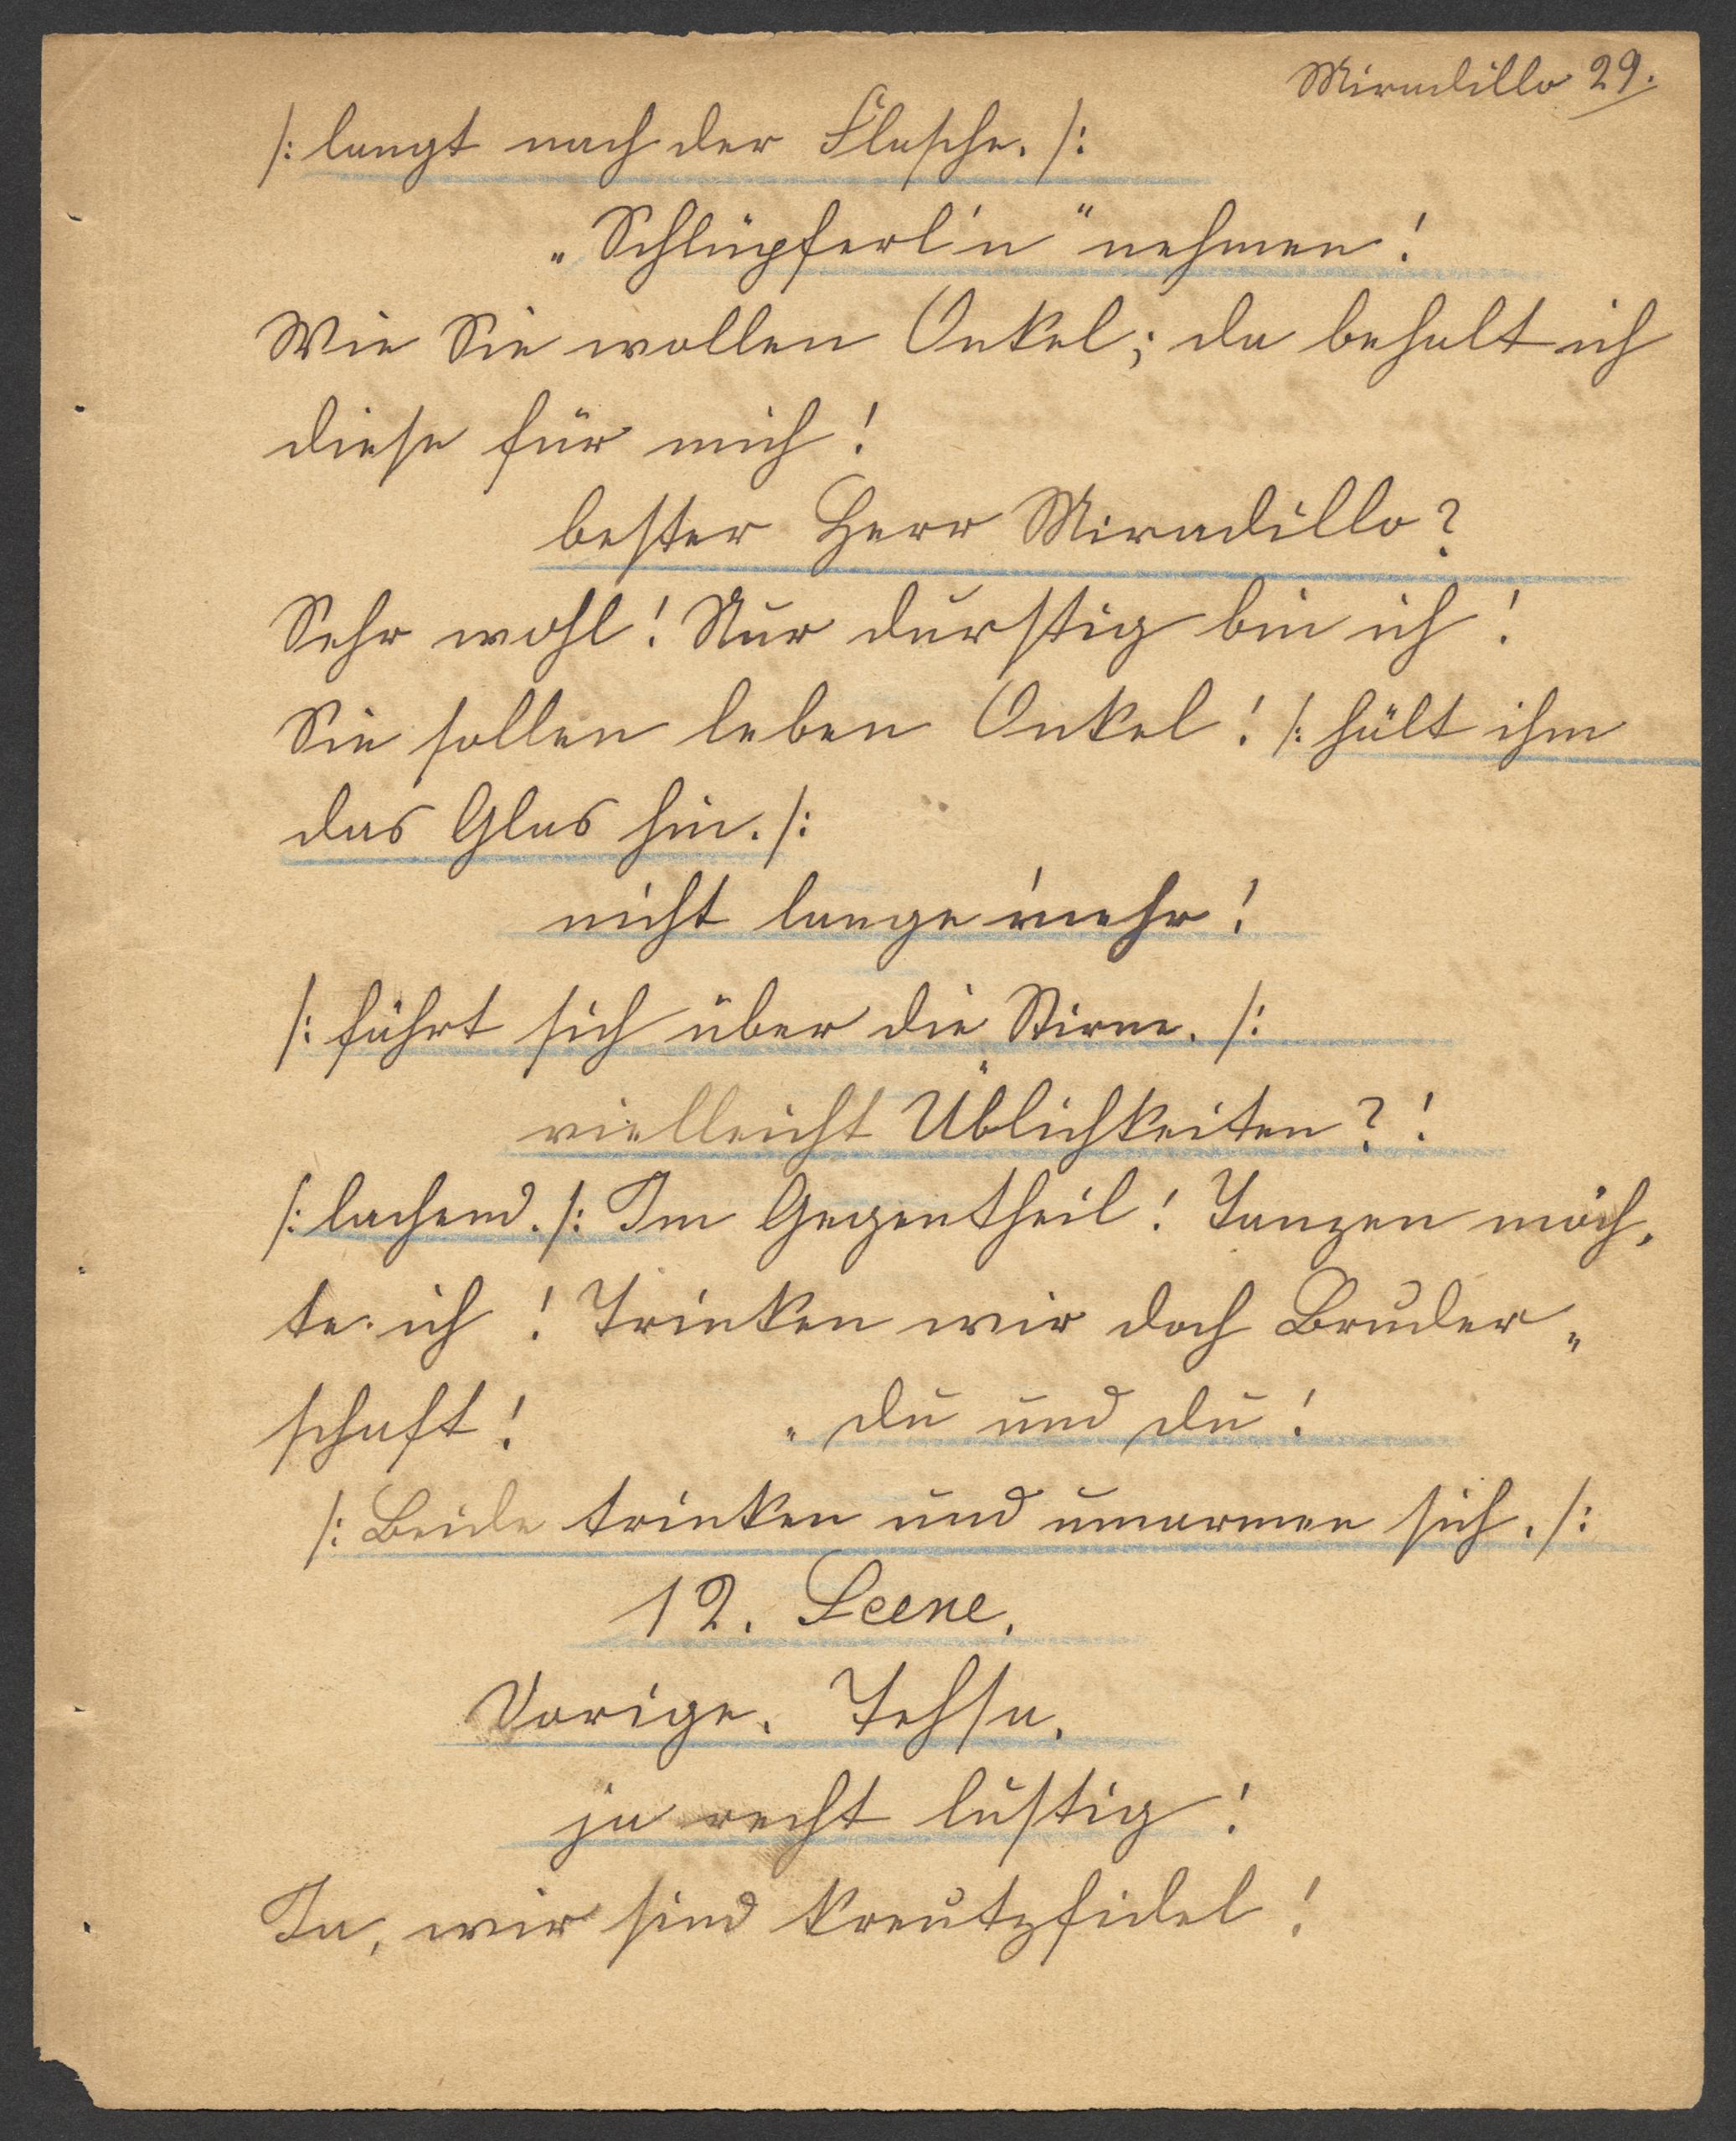 Miradillo 29.
/: langt nach der Flasche. /:
„Schlüpferl'n" nehmen!
Wie Sie wollen Onkel; da behalt ich
diese für mich!
bester Herr Miradillo?
Sehr wohl! Nur durstig bin ich!
Sie sollen leben Onkel! /: hält ihm
das Glas hin. /:
nicht lange mehr!
/: fährt sich über die Stirne. /:
vielleicht Üblichkeiten?!
/: lachend. /: Im Gegentheil! Tanzen möch„
te ich! Trinken wir doch Bruder„
schaft! „du und du!
/: Beide trinken und umarmen sich. /:
12. Scene.
Vorige. Tehsa.
ja recht lustig!
Ja, wir sind kreutzfidel!